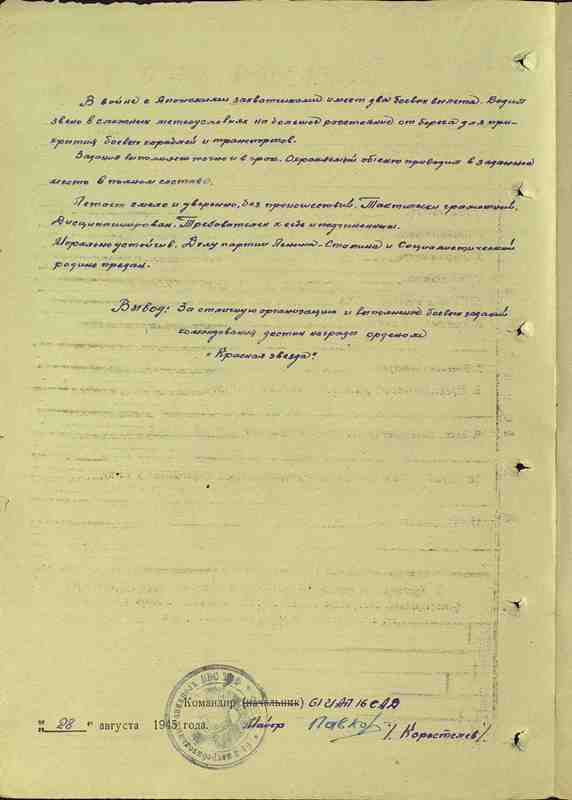 В войне с Японскими захватчиками имеет два боевых вылета. Водил
звено в сложных метеоусловиях на большое расстояние от берега для при-
крытия боевых кораблей и транспортов.
Задания выполняет точно и в срок. Охраняемый объект приводил в заданное
место в полном составе.
Летает смело и уверенно, без происшествий. Тактически грамотный.
Дисциплинирован. Требователен к себе и подчиненным.
Морально устойчив. Делу партии Ленина-Сталина и Социалистической
родине предан.
Вывод: За отличную организацию и выполнение боевых заданий
командования достоин награды орденом
"Красная звезда"
Командир (начальник) 61 ИАП 16 САД
"28" августа 1945 года. Майор /Коростелев/